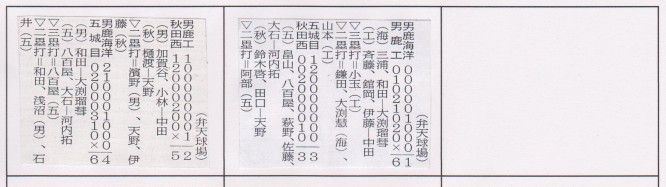 （弁天球場）
男鹿工 100000001 2
秋田西 12000200× 5
（男）加賀谷、小林―中田
（秋）樋渡―天野
▽二塁打＝濱野（男）、天野、伊
藤（秋）
男鹿海洋 210001000 4
五城目 02000310× 6
（男）和田―大渕瑠彗
（五）八百屋、大石―河内拓
▽三塁打＝八百屋（五）
▽二塁打＝和田、浅沼（男）、石
井（五）
（弁天球場）
男鹿海洋 000000001 1
男鹿工 01021020× 6
（海）三浦、和田―大渕瑠彗
（工）斉藤、舘岡、伊藤―中田
▽三塁打＝小玉（工）
▽二塁打＝鎌田、大渕慧（海）、
山本（工）
五城目 120000000 3
秋田西 000200010 3
（五）畠山、八百屋、萩野、佐藤、
大石―河内拓
（秋）鈴木啓、田口―天野
▽二塁打＝阿部（五）